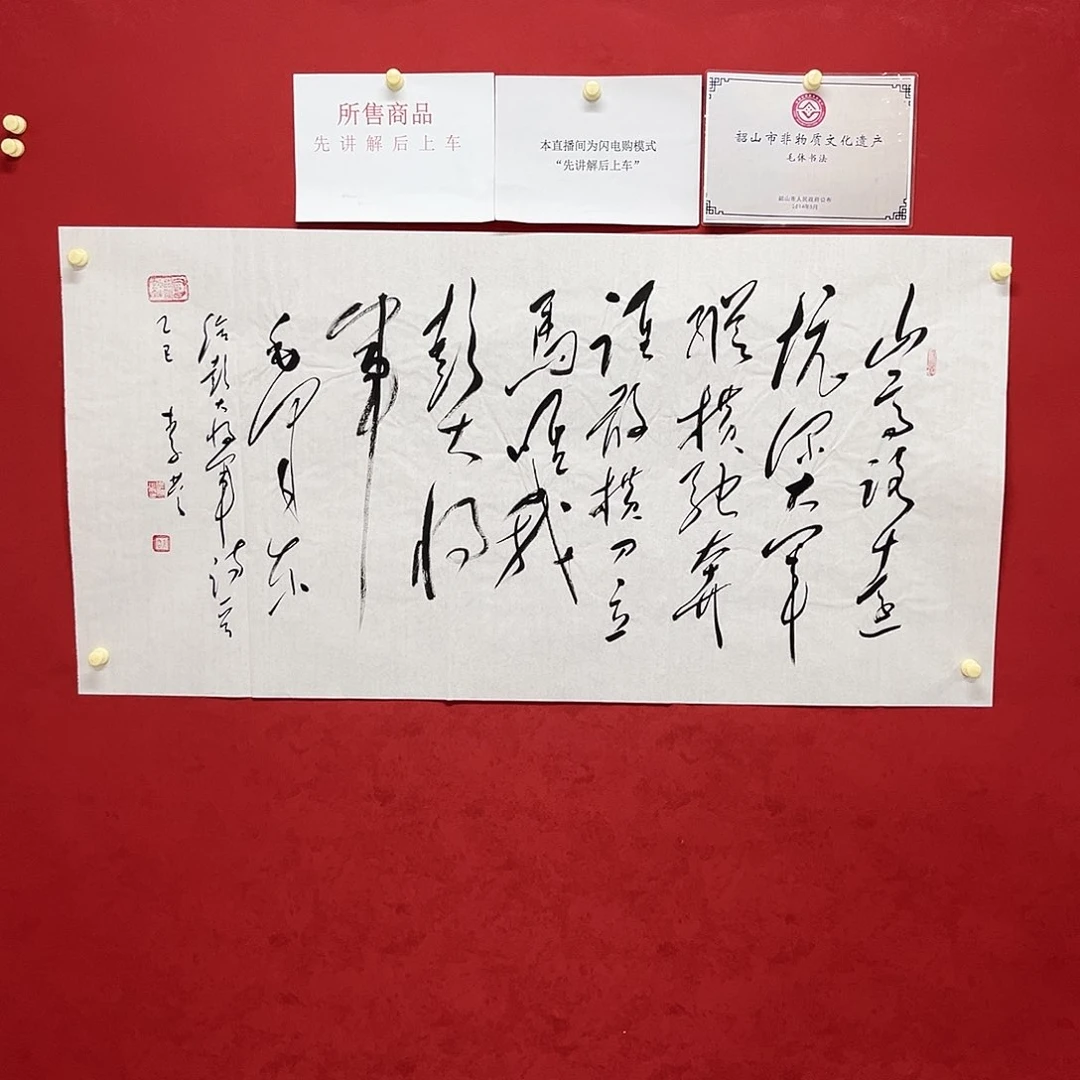 所售商品
先讲解后上车
本直播间为闪电购模式
“先讲解后上车”
韶山市非物质文化遗产
毛体书法
韶山市人民政府公布
山高路遠
坑深大軍
縱橫馳奔
誰敢橫刀立
馬唯我
彭大将
軍
毛泽东
给彭大将軍诗一首
乙巳 李